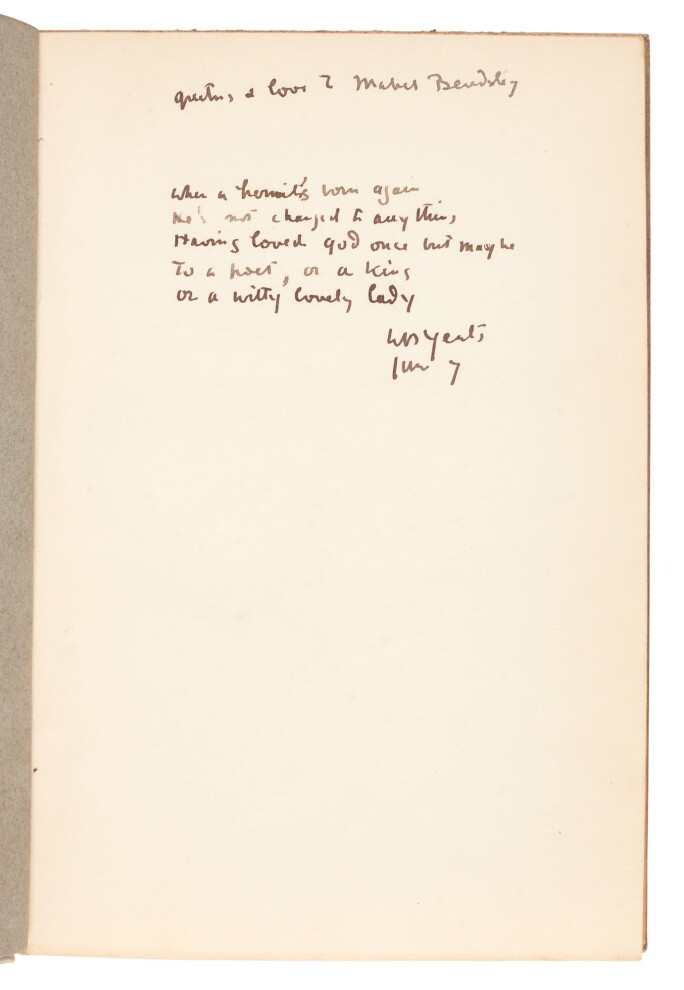 greetings & love to Mabel Beardsley
when a hermit's born again
He's not changed to any thing
Having loved god once but maybe
To a poet, or a King
or a witty lovely lady
WBYeats